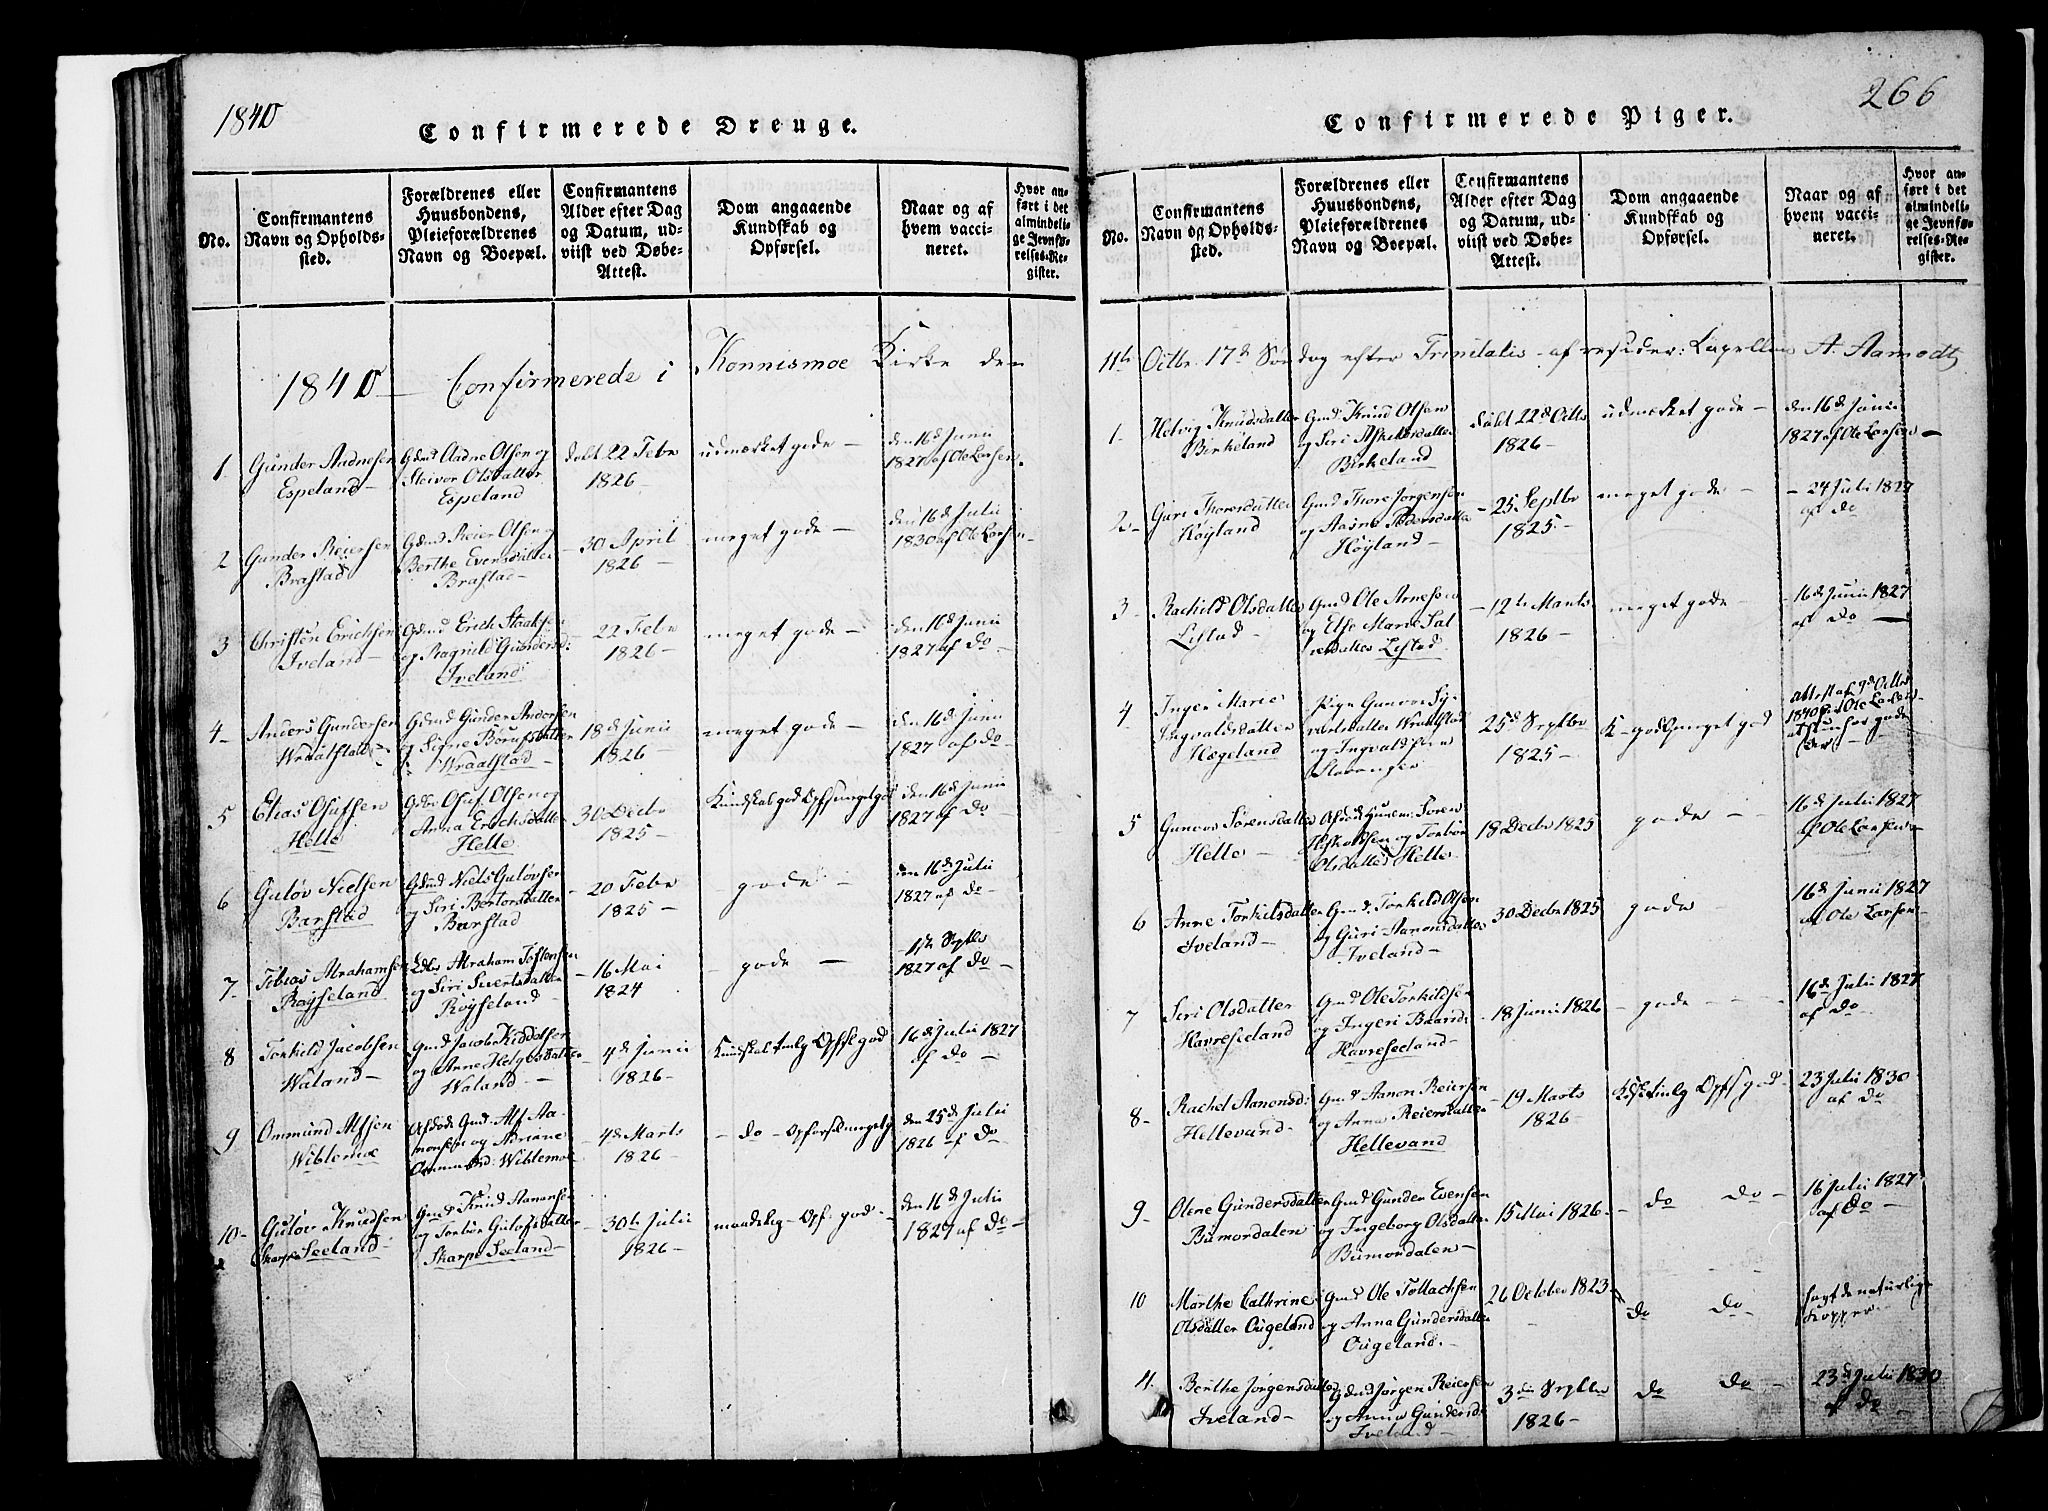 1840
Confirmerede Drenge.
No.
Confirmantens
Navn og Opholds-
sted.
Forældrenes eller
Huusbondens,
Pleieforældrenes
Navn og Boepæl.
Confirmantens
Alder efter Dag
og Datum, ud-
viist ved Døbe-
Attest.
Dom angaaende
Kundskab og
Opførsel.
Naar og af
hvem vacci-
neret.
Hvor an-
ført i det
almindeli-
ge Jevnfø-
relses-Re-
gister.
1840 - Confirmerede i Konnismoe Kirke den
1
Gunder Aadnesen
Espeland -
Gdmd Aadne Olsen og
Steivor Olsdatter
Espeland
døbt 22 Febr
1826 -
udmærket gode -
den 16d Junii
1827 af Ole Larsen.
2
Gunder Reiersen
Brastad
Gdmd Reier Olsen og
Berthe Evensdatter
Brastad -
- 30 April
1826 -
meget gode -
den 16d Julii
1830 af Ole Larsen -
3
Christen Erichsen
Iveland -
Gdmd Erich Staalesen
og Ragnild Gundersd:
Iveland
- 22 Febr
1826 -
meget gode -
den 16d Junii
1827 af do
4 -
Anders Gundersen
Wraalstad -
Gdmd Gunder Andersen
og Signe Börufsdatter
Wraalstad -
18d Junii
1826 -
meget gode -
den 16d Junii
1827 af do -
5
Elias Olufsen
Helle
Gdbr Oluf Olsen og
Anna Erichsdatter
Helle
30 Decbr
1825 -
Kundskab god Opf: meget god
den 16d Junii
1827 af do
6
Guløv Nielsen
Barstad
Gdmd Niels Guløvsen
og Siri Bertorsdatter
Barstad
- 20 Febr
1825 -
- gode -
den 16d Julii
1827 af do -
7 -
Tobias Abrahamsen
Røyseland
Abraham Tostensen
og Siri Sivertsdatter
Røyseland -
- 16 Mai
1824
- gode -
- 1ste Septbr
1827 af do -
8
Torkild Jacobsen
Waland -
Gmd Jacob Kiddelsen
og Anne Helgesdatter
Waland -
- 4d Junii
1826 -
Kundskab temlg Opfsl god
16d Julii 1827
af do -
9
Ommund Alfsen
Wiblemoe
Afdöde Gmd Alf Aa-
monsen og Adriane
Ommunds: Wiblemoe
- 4d Marts
1826 -
- do - Opførsel meget g
den 25d Julii
1826 af do
10 -
Guløv Knudsen
Skarpe Seeland -
Gmd Knud Aanonsen
og Torbör Guløfsdatter
Skarpe Seeland -
- 30te Julii
1826 -
maadelig - Opf: god -
den 16d Julii
1827 af do -
266
Confirmerede Piger.
No.
Confirmantens
Navn og Opholds-
sted.
Forældrenes eller
Huusbondens,
Pleieforældrenes
Navn og Boepæl.
Confirmantens
Alder efter Dag
og Datum, ud-
viist ved Døbe-
Attest.
Dom angaaende
Kundskab og
Opførsel.
Naar og af
hvem vacci-
neret.
Hvor an-
ført i det
almindeli-
ge Jevnfø-
relses-Re-
gister.
11te Octbr. 17d Søndag efter Trinitatis - af resider: Capellan A. Aamodt
1 -
Helvig Knudsdatter
Birkeland
Gmd: Knud Olsen
og Siri Aslaksdatter
Birkeland
døbt 22d Octbr
1826 -
udmærket gode -
den 16d Junii
1827 af Ole Larsen -
2 -
Guri Thorersdatter
Høyland
Gmd Thore Jørgensen
og Aasne Pedersdatter
Høyland -
- 25 Septbr
1825 -
meget gode -
- 24 Julii 1827
af do
3 -
Rachild Olsdatter
Lestad -
Gmd Ole Arnesen
og Else Marie Sal
vesdatter Lestad.
- 12te Marts
1826 -
meget gode -
- 16d Junii 1827
af do -
4
Inger Marie
Ingvaldsdatter
Hægeland
Pige Gunvor Sy-
vertsdatter Wraalstad
og Ingvald
Stavanger
25d Septbr
1825 -
K - god O meget god
Attest af 9d Octbr
1840 fra Ole Larsen
5
Gunvor Sørensdatter
Helle -
Afdöde Huusm: Søren
Aslaksen og Torbör
Olsdatter Helle.
18 Decbr 1825
gode -
16d Julii 1827
af Ole Larsen -
6
Anne Torkilsdatter
Iveland -
Gmd: Torkild Olsen
og Guri Aanonsdatter
Iveland -
30 Decbr 1825
gode -
16d Junii 1827
af Ole Larsen -
7
Siri Olsdatter
Havreseland
Gmd Ole Torkildsen
og Ingeri Baardsd:
Havreseeland -
- 18 Junii 1826
- gode -
16d Julii 1827
af do -
8 -
Rachel Aanonsd:
Hellevand -
Gmd Aanon Reiersen
og Anna Reiersdatter
Hellevand
- 19 Marts
1826
K temlg Opfsl god -
23 Julii 1830
af do
9 -
Olene Gundersdatter
Bumordalen
Gmd Gunder Evensen
og Ingeborg Olsdatter
Bumordalen -
15 Mai 1826 -
- do do -
16 Julii 1827
af do -
10
Marthe Cathrine
Olsdatter Ougeland
Gmd Ole Tollachsen
og Anna Gundersdatter
Ougeland -
26 October 1823 -
do do -
havt de naturlige
Kopper -
11.
Berthe Jørgensdatter
Iveland -
Gdmd Jørgen Reiersen
og Anna Gundersd:
Iveland -
3die Septbr
1826 -
do do -
23d Julii 1830
af do -